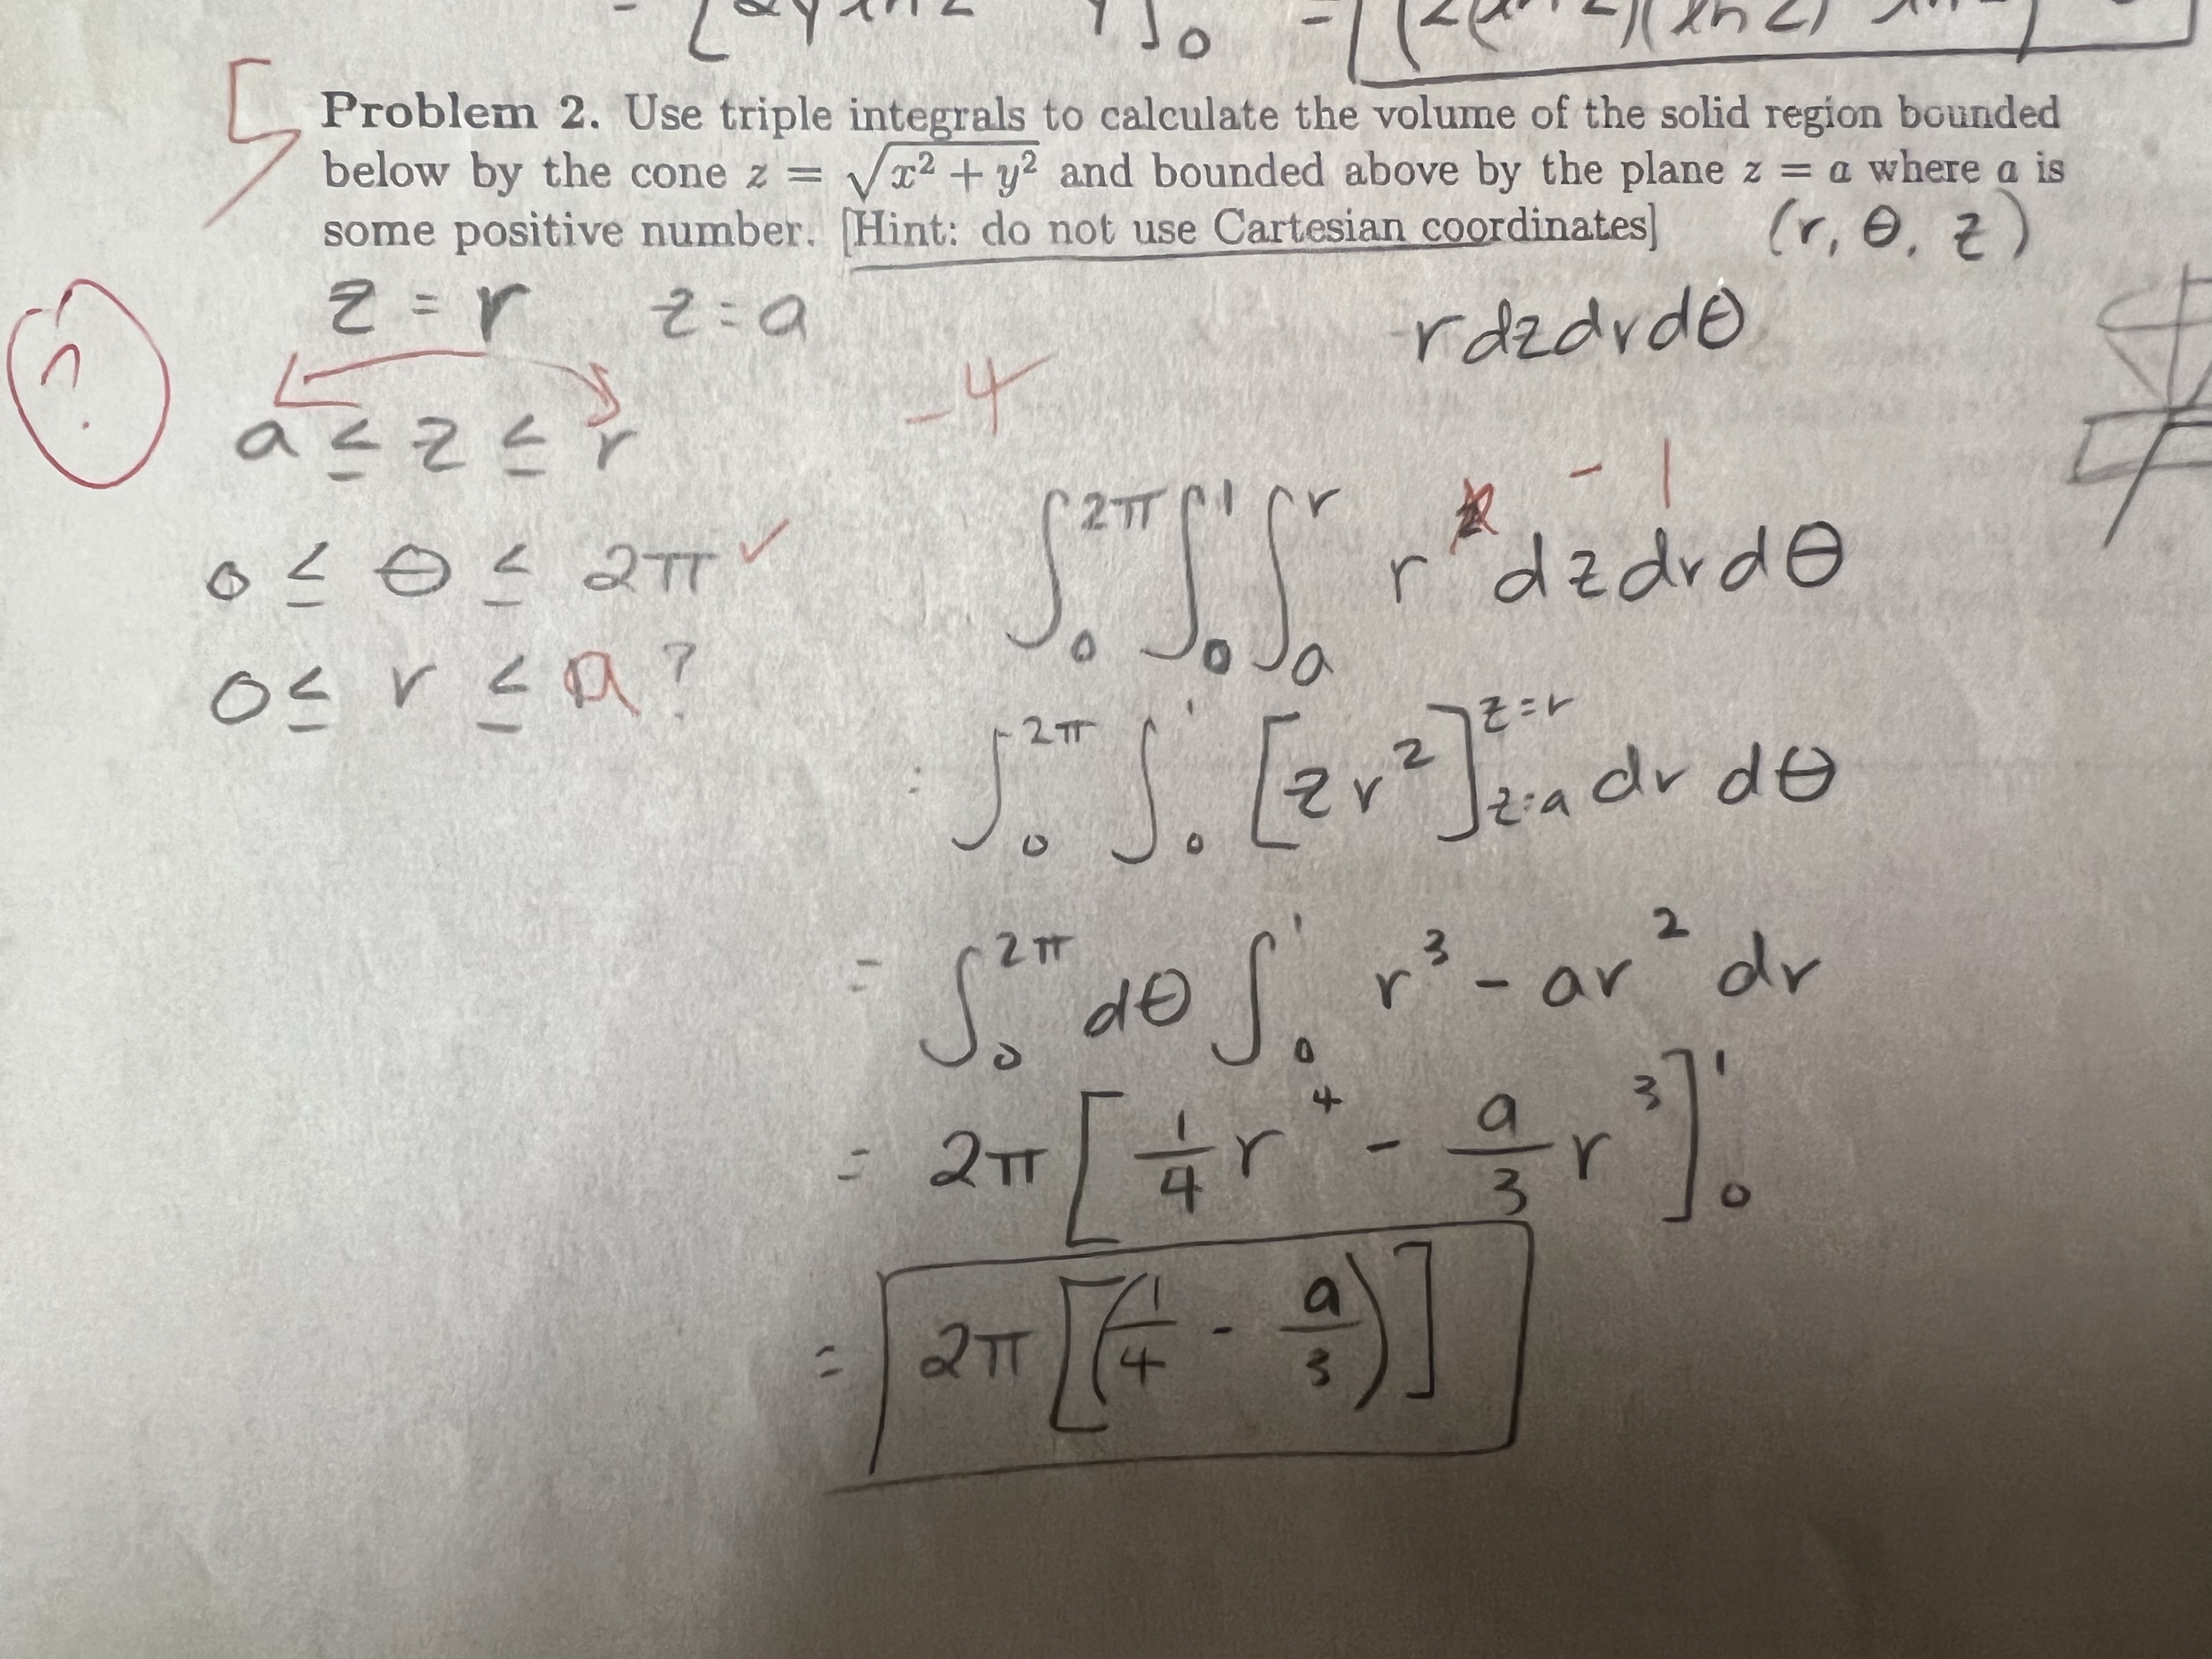 5
Problem 2. Use triple integrals to calculate the volume of the solid region bounded
below by the cone z = √(x² + y²) and bounded above by the plane z = a where a is
some positive number. [Hint: do not use Cartesian coordinates] (r, θ, z)
z = r   z = a   r dz dr dθ
?
-4
a ≤ z ≤ r
-1
0 ≤ θ ≤ 2π ✓   ∫₀^2π ∫₀^1 ∫ₐ^r r² dz dr dθ
0 ≤ r ≤ a ?
= ∫₀^2π ∫₀^1 [z r²]_{z=a}^{z=r} dr dθ
= ∫₀^2π dθ ∫₀^1 r³ - ar² dr
= 2π [1/4 r⁴ - a/3 r³]₀^1
= 2π [(1/4 - a/3)]